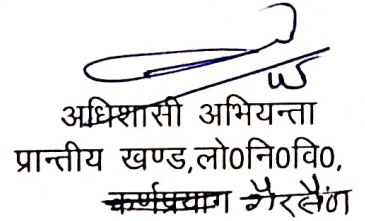 अधिशासी अभियन्ता
प्रान्तीय खण्ड,लो०नि०वि०,
कर्णप्रयाग गैरसैंण